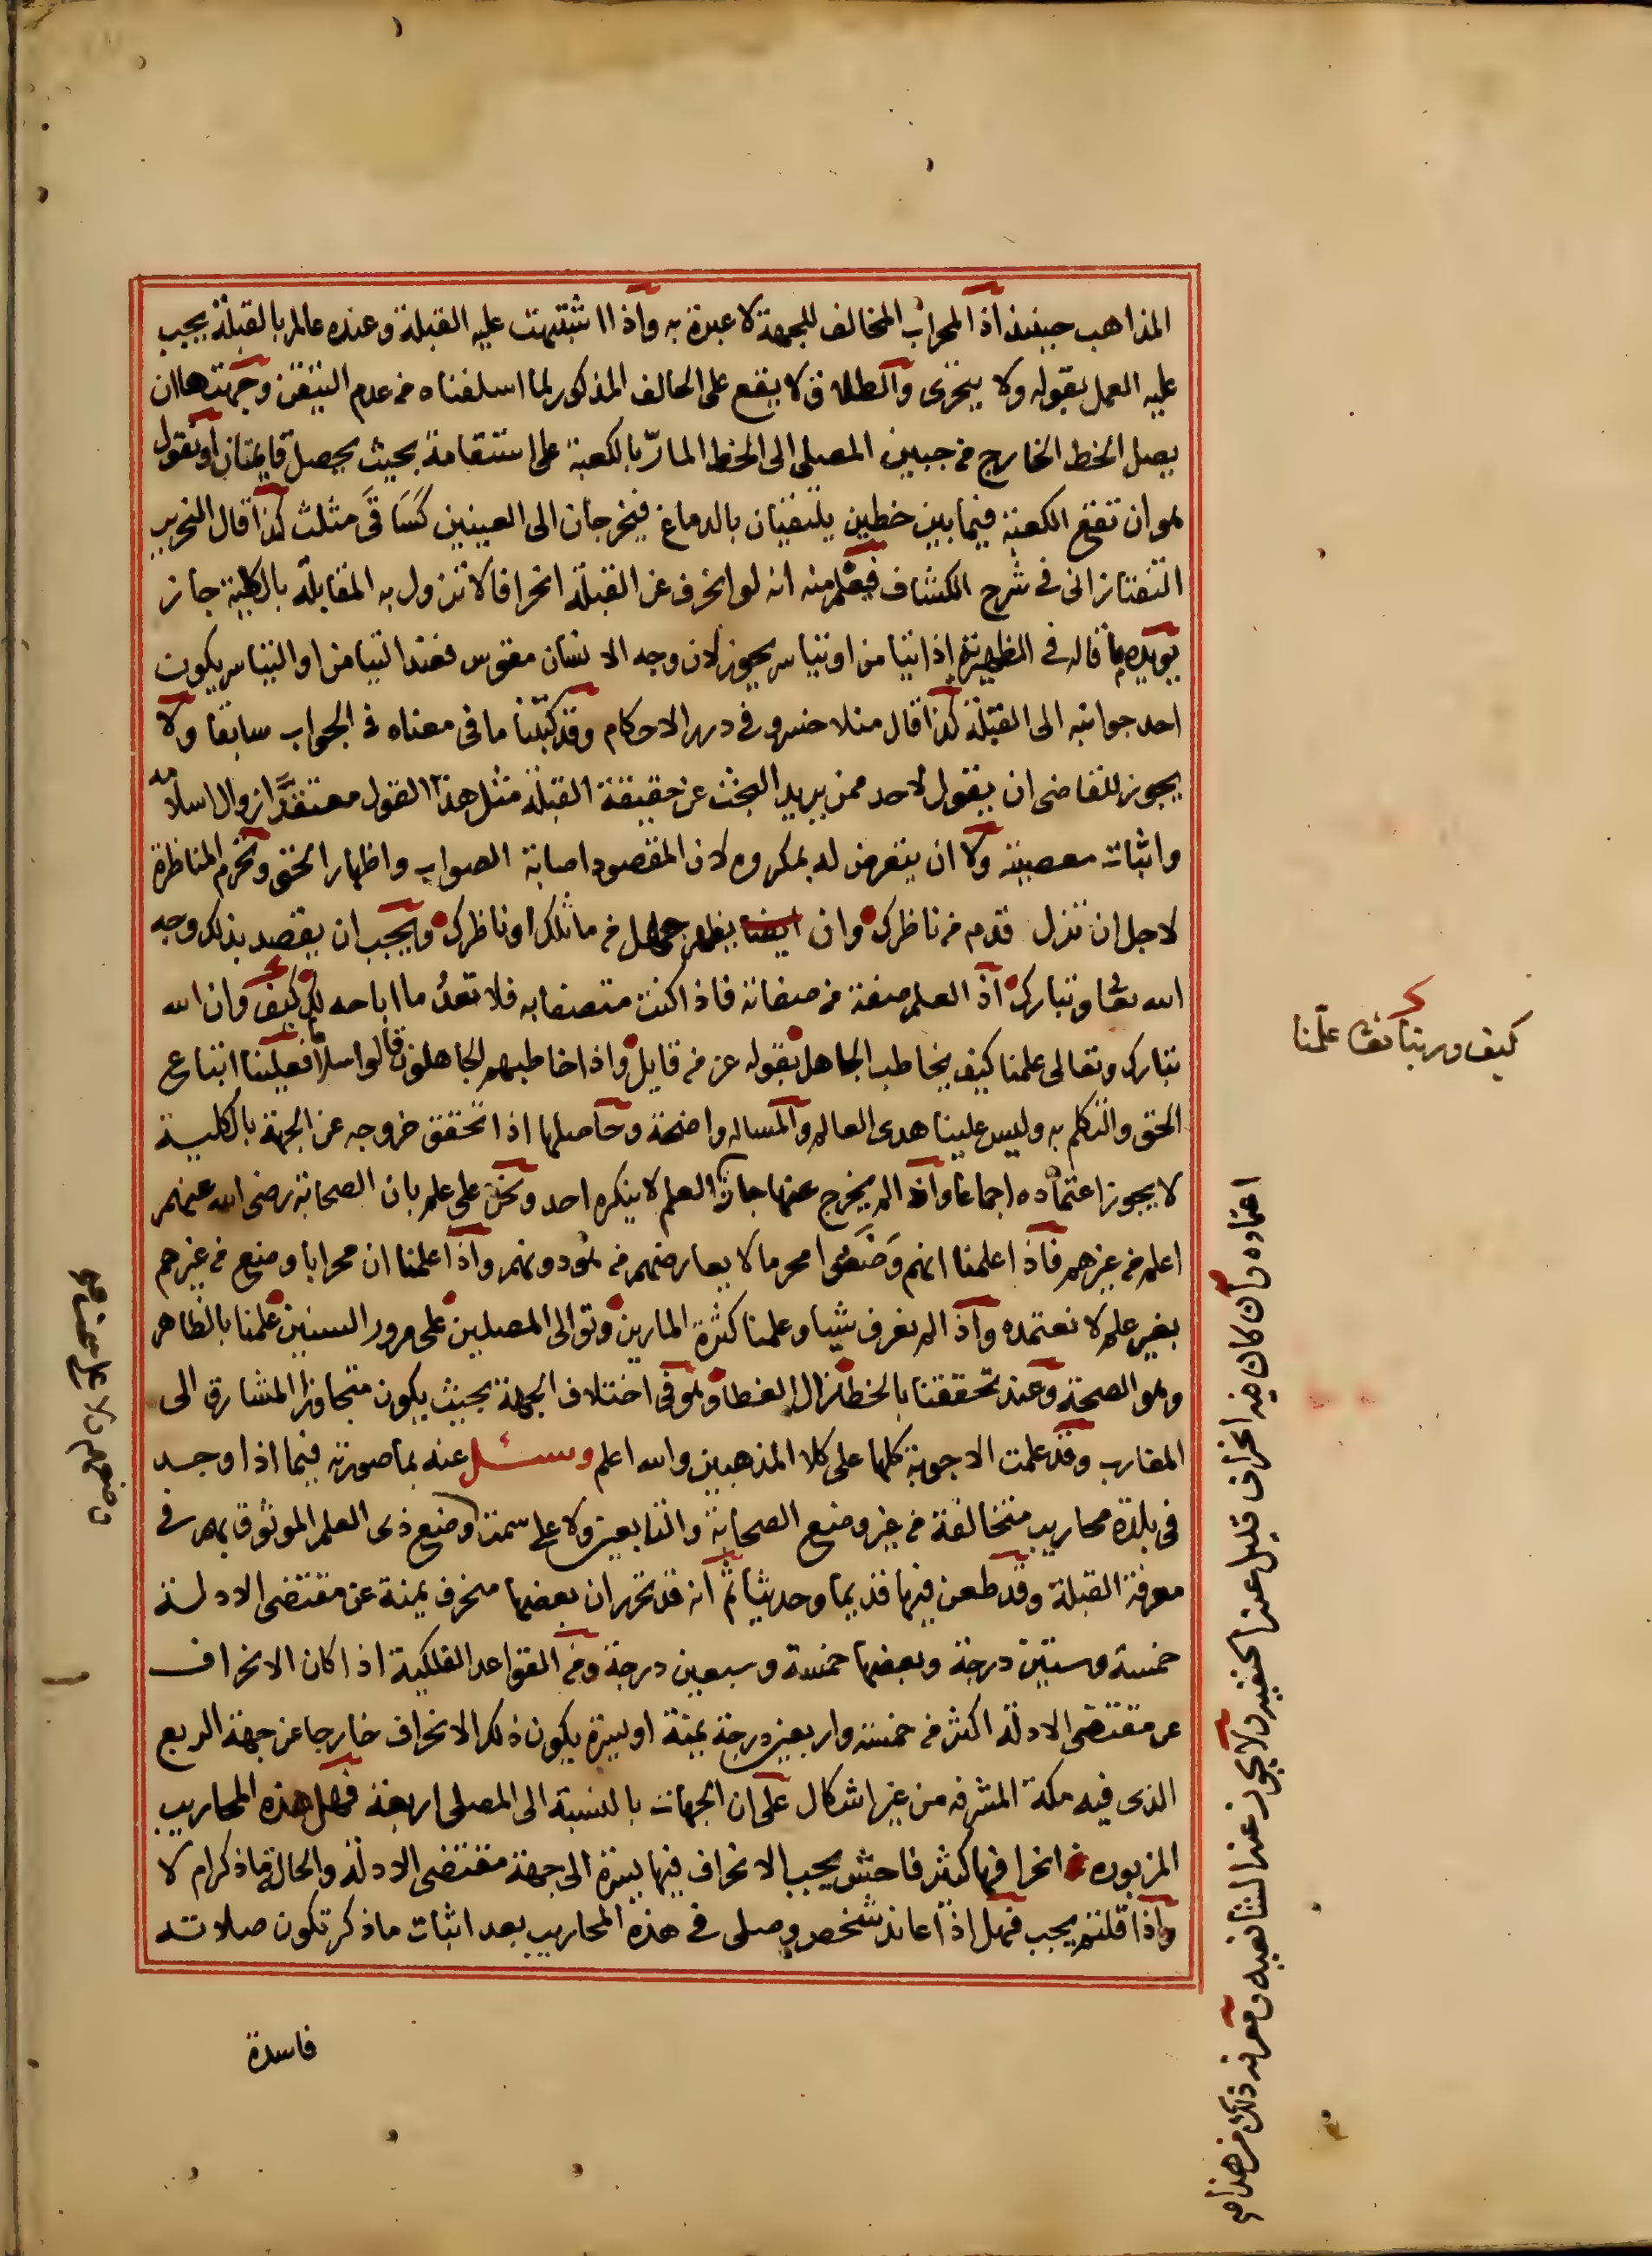 المذاهب حينئذ اذ المحراب المخالف للجهة لا عبرة به واذا اشتبهت عليه القبلة وعنده عالم بالقبلة يجب
عليه العمل بقوله ولا يتحرى والطلاق لا يقع على الحالف المذكور لما اسلفناه من عدم التيقن وجهتها ان
يصل الخط الخارج من جبين المصلي الى الخط المار بالكعبة على استقامة بحيث يحصل قايمتان او نقول
هو ان تقع الكعبة فيما بين خطين يلتقيان بالدماغ فيخرجان الى العينين كساقَى مثلث كذا قال النحرير
التفتازانى فى شرح الكشاف فيعلم منه انه لو انحرف عن القبلة انحرافا لا تزول به المقابلة بالكلية جاز
يويده ما قاله فى الظهيرية اذا تيامن او تياسر يجوز لان وجه الانسان مقوس فعند التيامن او التياسر يكون
احد جوانبه الى القبلة كذا قال منلا خسرو فى درر الاحكام وقد كتبنا ما فى معناه فى الجواب سابقا ولا
يجوز للقاضى ان يقول لاحد ممن يريد البحث عن حقيقة القبلة مثل هذا القول معتقدا زوال اسلامه
واثبات معصيته ولا ان يتعرض له بمكروه لان المقصود اصابة الصواب واظهار الحق وتحرم المناظرة
لاجل ان تزل قدم من ناظرك وان يظهر جهل من ماثلك او ناظرك ويجب ان يقصد بذلك وجه
الله تعا وتبارك اذ العلم صفة من صفاته فاذا كنت متصفا به فلا تعدُ ما اباحه لك كيف وان الله
تبارك وتعالى علمنا كيف يخاطب الجاهل بقوله عز من قايل واذا خاطبهم الجاهلون قالوا سلاما فعلينا اتباع
الحق والتكلم به وليس علينا هدى العالم والمساله واضحة وحاصلها اذا تحقق خروجه عن الجهة بالكلية
لا يجوز اعتماده اجماعا واذا لم يخرج عنها جاز العلم لا ينكره احد ونحن على علم بان الصحابة رضى الله عنهم
اعلم من غيرهم فاذا علمنا انهم وَضَعُوا محرما لا يعارضهم من هو دونهم واذا علمنا ان محرابا وضع من غيرهم
بغير علم لا نعتمده واذا لم نعرف شيا وعلمنا كثرة المارين وتوالى المصلين على مرور السنين علمنا بالظاهر
وهو الصحة وعند تحققنا بالخطا زال الغطا وهو فى اختلاف الجهة بحيث يكون متجاوز المشارق الى
المغارب وقد علمت الاجوبة كلها على كلا المذهبين والله اعلم وسئل عنه بما صورته فيما اذا وجد
فى بلدة محاريب متخالفة من غير وضع الصحابة والتابعين ولا على سمت وضع ذى العلم الموثوق بهم فى
معرفة القبلة وقد طعن فيها قديما وحديثا ثم انه قد تحرر ان بعضها منحرف يمنة عن مقتضى الادلة
خمسة وستين درجة وبعضها خمسة وسبعين درجة ومن القواعد الفلكية اذا كان الانحراف
عن مقتضى الادلة اكثر من خمسة واربعين درجة يمنة او يسرة يكون ذلك الانحراف خارجا عن جهة الربع
الذى فيه مكة المشرفه من غير اشكال على ان الجهات بالنسبة الى المصلى اربعة فهل هذه المحاريب
المزبوره انحرافها كثير فاحش يجب الانحراف فيها يسرة الى جهة مقتضى الادلة والحالة ما ذكر ام لا
واذا قلتم يجب فهل اذا عاند شخص وصلى فى هذه المحاريب بعد اثبات ما ذكر تكون صلاته
فاسدة
كيف وربنا تعا علمنا
اعتماده وان كان فيه انحراف قليل عند الحنفيه ولا يجوز عند الشافعيه ومعرفة ذلك من هذا